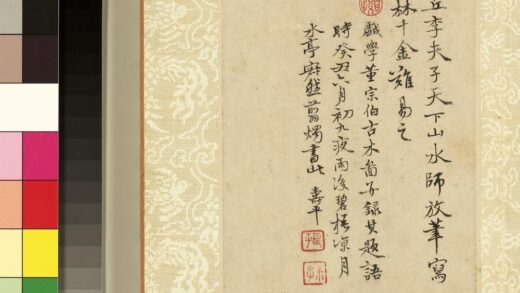 丘李夫子天下山水師放筆寫
林千金難易之
戲學董宗伯古木啚并錄其題語
時癸丑六月初九夜雨後碧梧涼月
水亭然翦燭書此 壽平